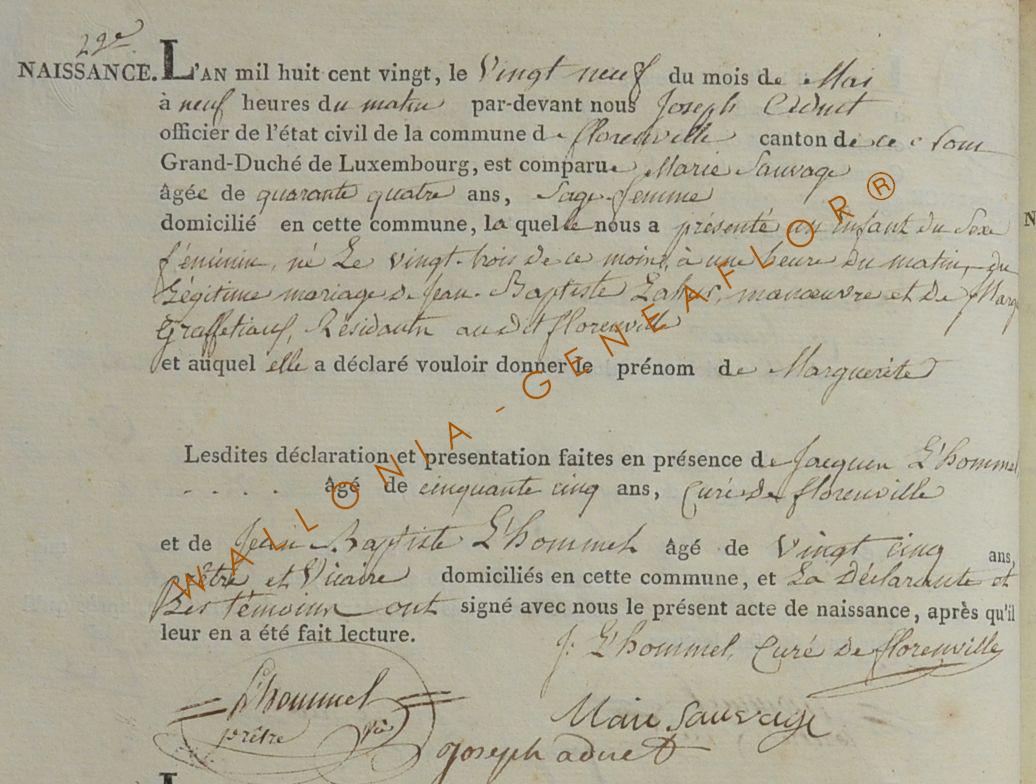 22e
NAISSANCE. L'AN mil huit cent vingt, le Vingt neuf du mois de Mai
à neuf heures du matin par-devant nous Joseph Aduet
officier de l'état civil de la commune de florenville canton de ce nom
Grand-Duché de Luxembourg, est comparue Marie Sauvage
âgée de quarante quatre ans, Sage femme
domicilié en cette commune, laquelle nous a présenté un Enfant du Sexe
féminin, né Le vingt-trois de ce mois, à une heure du matin, du
Légitime mariage de Jean-Baptiste manœuvre et De Marg
Résidants audit florenville
et auquel elle a déclaré vouloir donner le prénom de Marguerite
Lesdites déclaration et présentation faites en présence de Jacques L'hommel
âgé de cinquante cinq ans, Curé De florenville
et de Jean Baptiste L'hommel âgé de Vingt cinq ans,
prêtre et Vicaire domiciliés en cette commune, et La Déclarante et
Les témoins ont signé avec nous le présent acte de naissance, après qu'il
leur en a été fait lecture. J: L'hommel, Curé De florenville
L'hommel
prêtre
Marie Sauvage
joseph aduet
WALLONIA-GENEAFLOR®
N
L